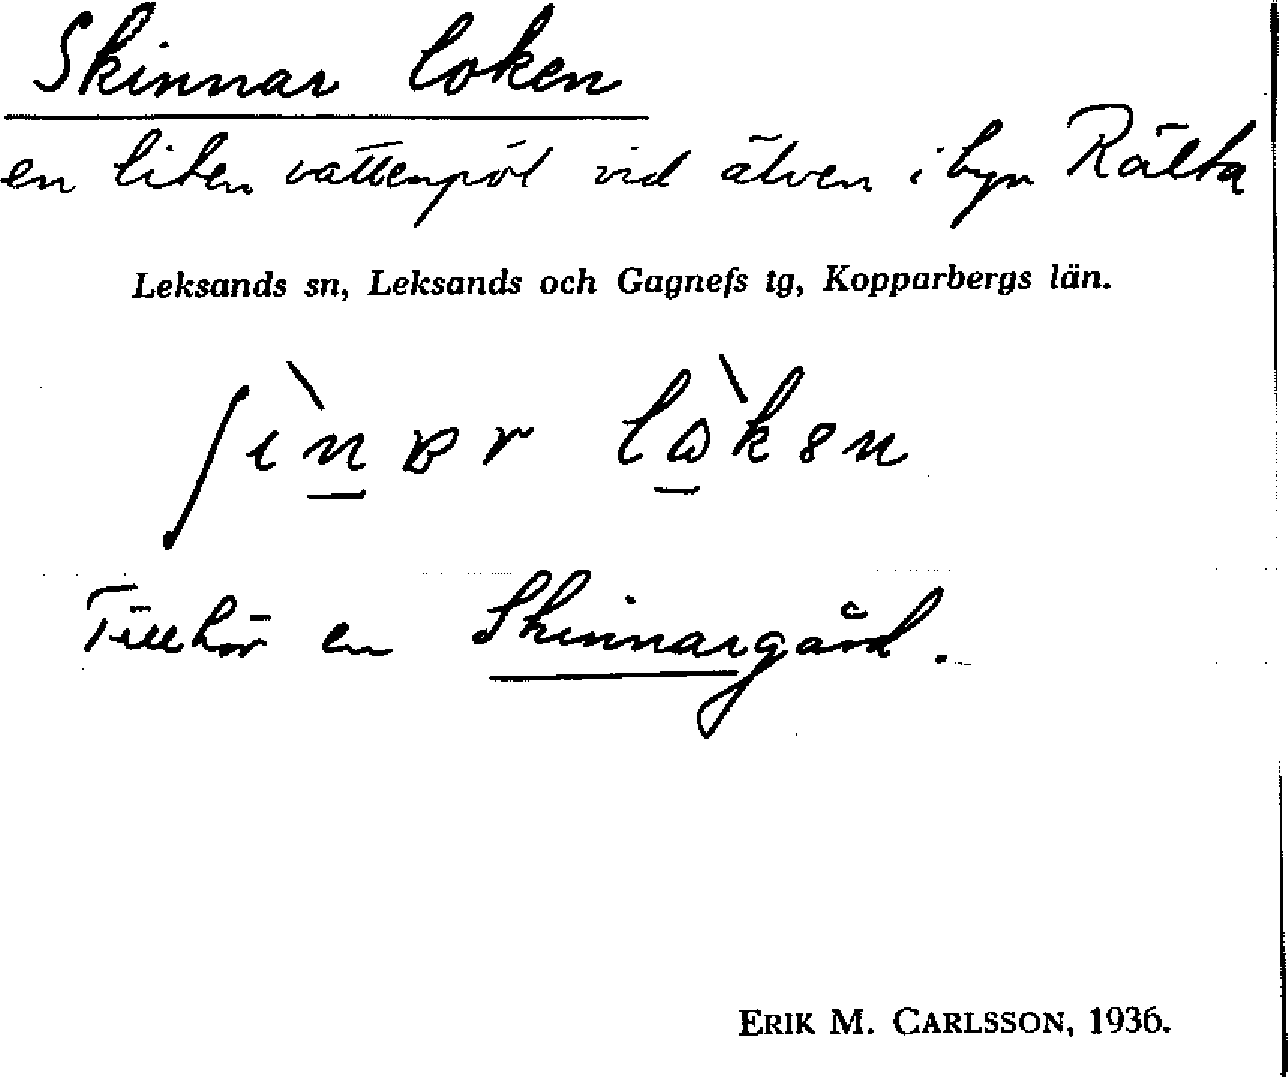 Skinnar loken
en liten vattenpöl vid älven i byn Rälta
Leksands sn, Leksands och Gagnefs tg, Kopparbergs län.
Tillhör en Skinnargård.
ERIK M. CARLSSON, 1936.